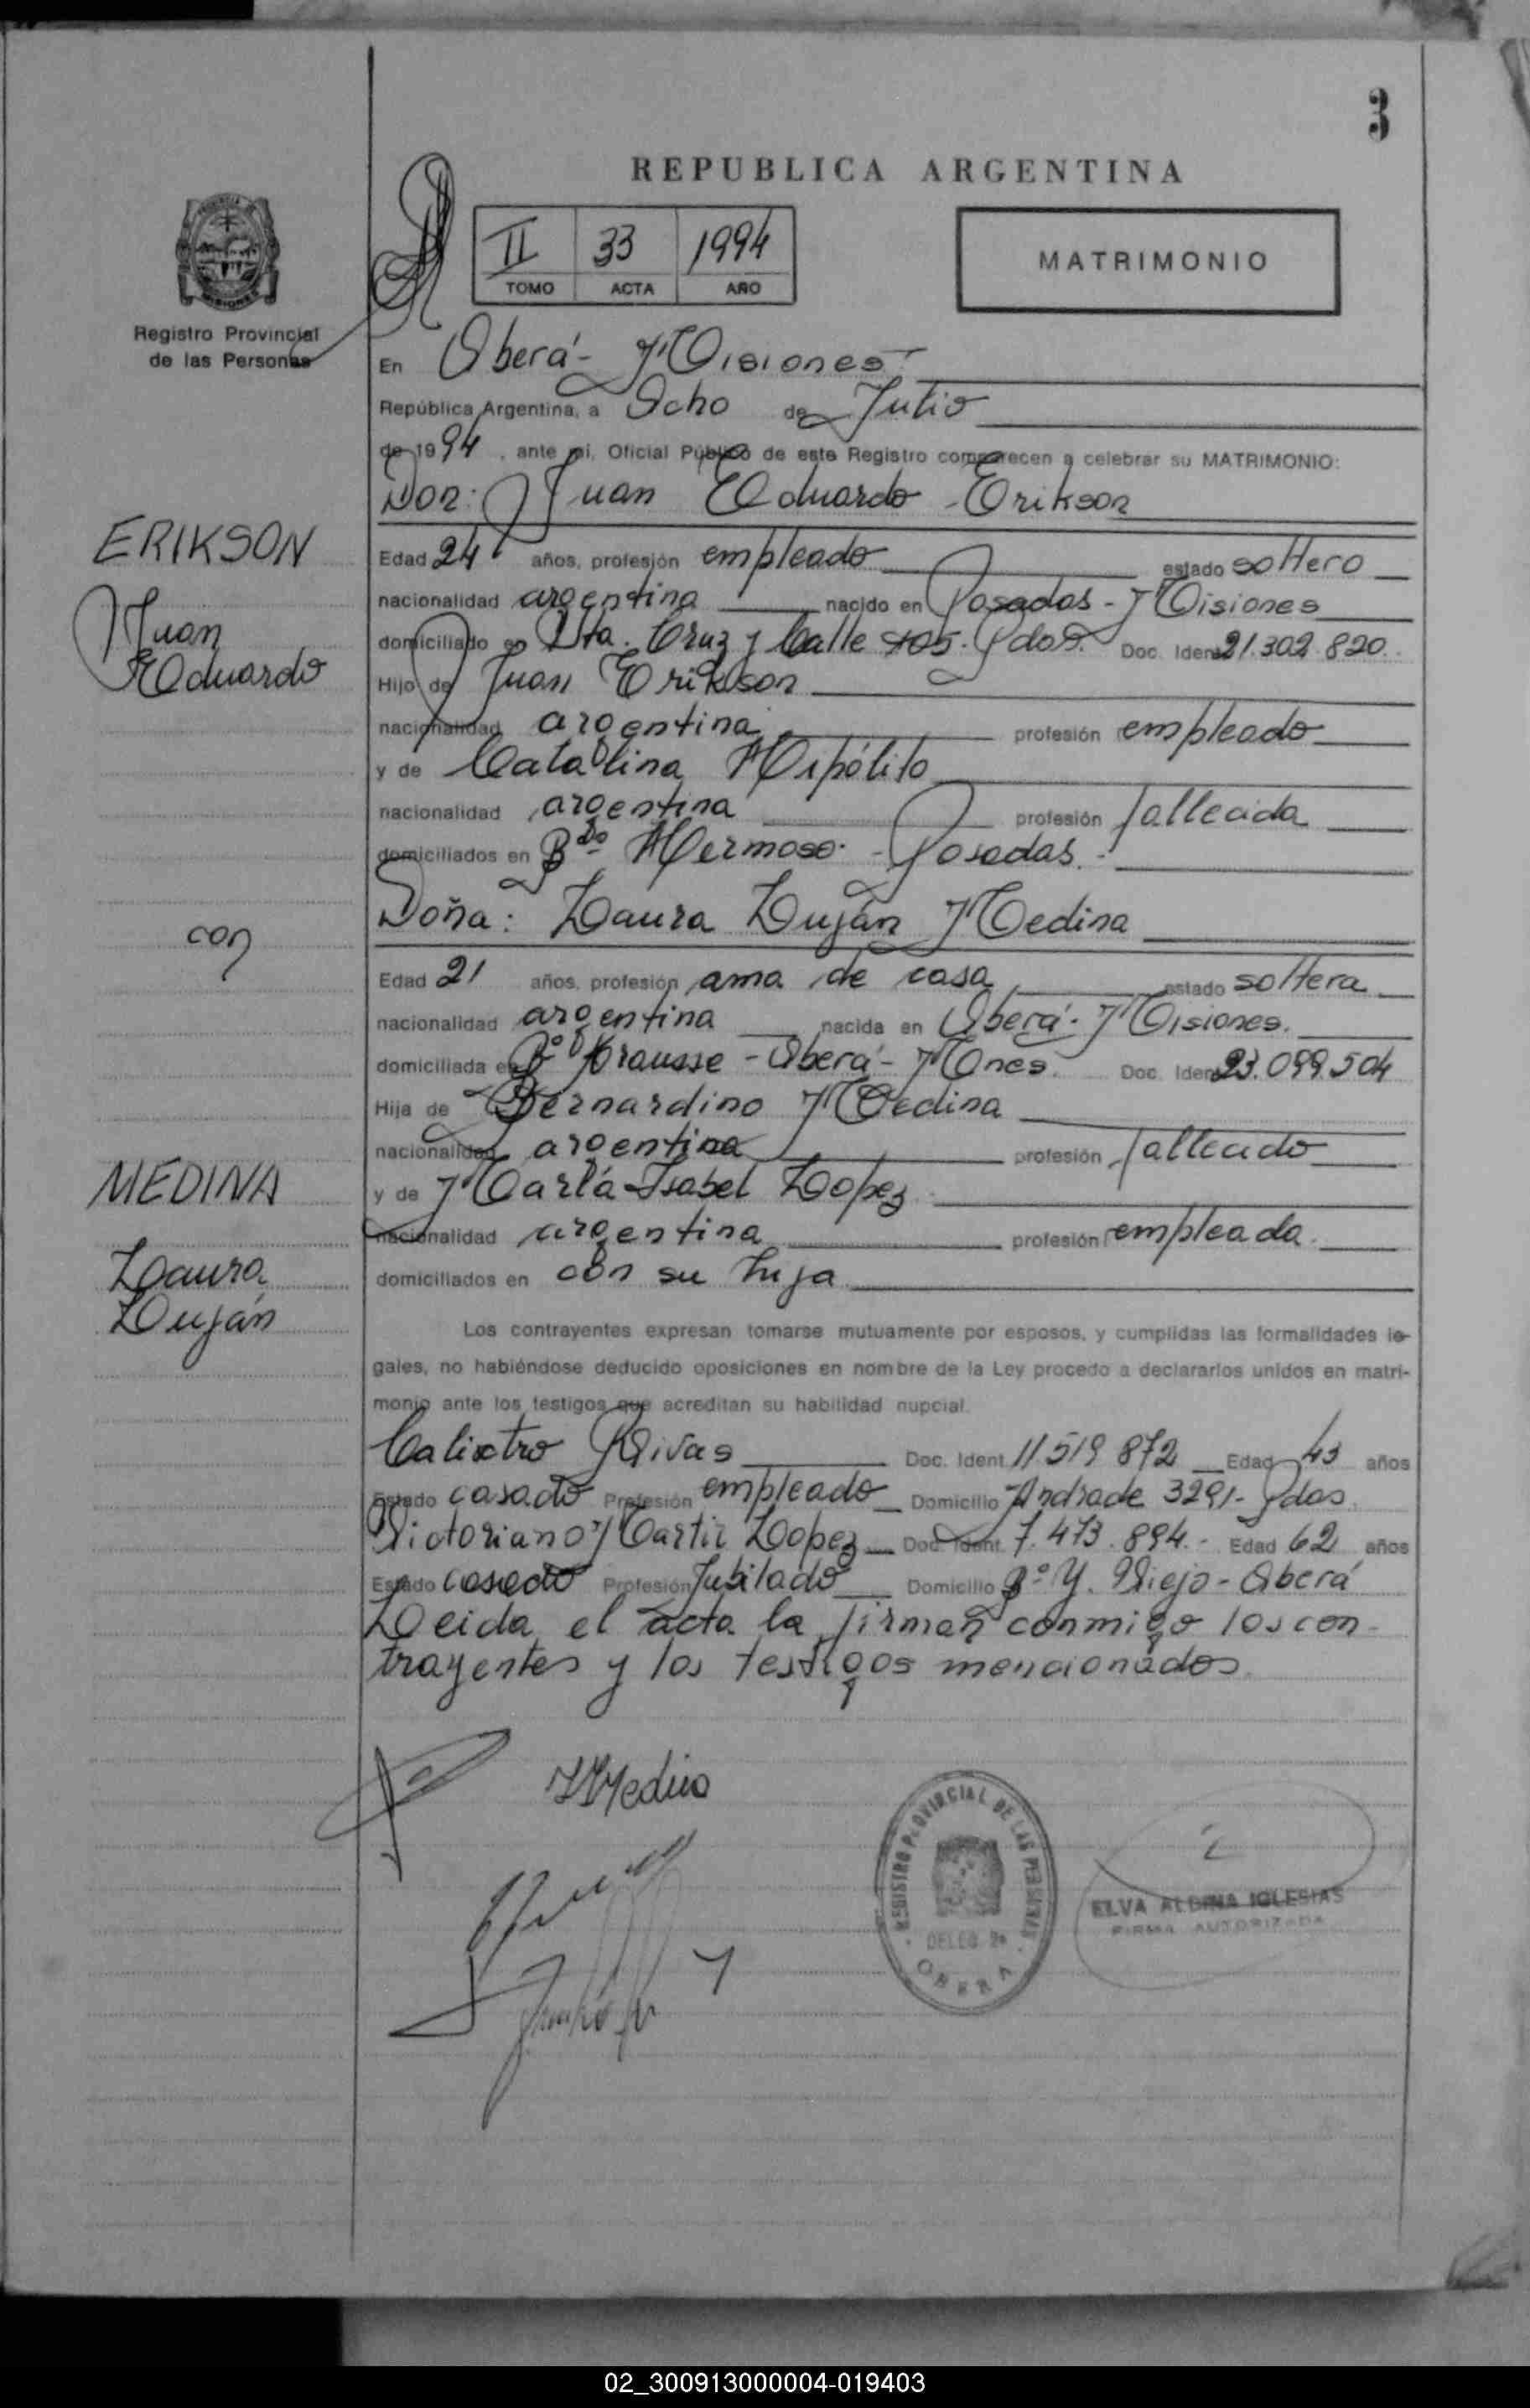 3
REPUBLICA ARGENTINA
II 33 1994
TOMO ACTA AÑO
MATRIMONIO
MISIONES
Registro Provincial
de las Personas
En Oberá - Misiones
República Argentina, a Ocho de Julio
de 1994, ante mi, Oficial Público de este Registro comparecen a celebrar su MATRIMONIO:
Don: Juan Eduardo Erikson
ERIKSON
Juan
Eduardo
Edad 24 años, profesión empleado estado soltero
nacionalidad argentina nacido en Posadas - Misiones
domiciliado en Sta. Cruz y Calle 105. Pdas. Doc. Ident. 21.302.820.
Hijo de Juan Erikson
nacionalidad argentina profesión empleado
y de Catalina Hipólito
nacionalidad argentina profesión fallecida
domiciliados en Bdo Hermoso - Posadas.-
Doña: Laura Luján Medina
con
Edad 21 años, profesión ama de casa estado soltera
nacionalidad argentina nacida en Oberá - Misiones.
domiciliada en Bº Krausse - Oberá - Mnes. Doc. Ident. 23.099.504
Hija de Bernardino Medina
nacionalidad argentina profesión fallecido
MEDINA
Laura
Luján
y de María Isabel Lopez
nacionalidad argentina profesión empleada.
domiciliados en con su hija
Los contrayentes expresan tomarse mutuamente por esposos, y cumplidas las formalidades le-
gales, no habiéndose deducido oposiciones en nombre de la Ley procedo a declararlos unidos en matri-
monio ante los testigos que acreditan su habilidad nupcial.
Calixtro Rivas Doc. Ident. 11.519.872 Edad 43 años
Estado casado Profesión empleado Domicilio Andrade 3291 - Pdas.
Victoriano Martir Lopez Doc. Ident. 7.473.894.- Edad 62 años
Estado casado Profesión Jubilado Domicilio Bº Y. Viejo - Oberá
Leida el acta la firman conmigo los con-
trayentes y los testigos mencionados.
LMedina
REGISTRO PROVINCIAL DE LAS PERSONAS
DELEG. 2a
OBERA
ELVA ALBINA IGLESIAS
FIRMA AUTORIZADA
02_300913000004-019403